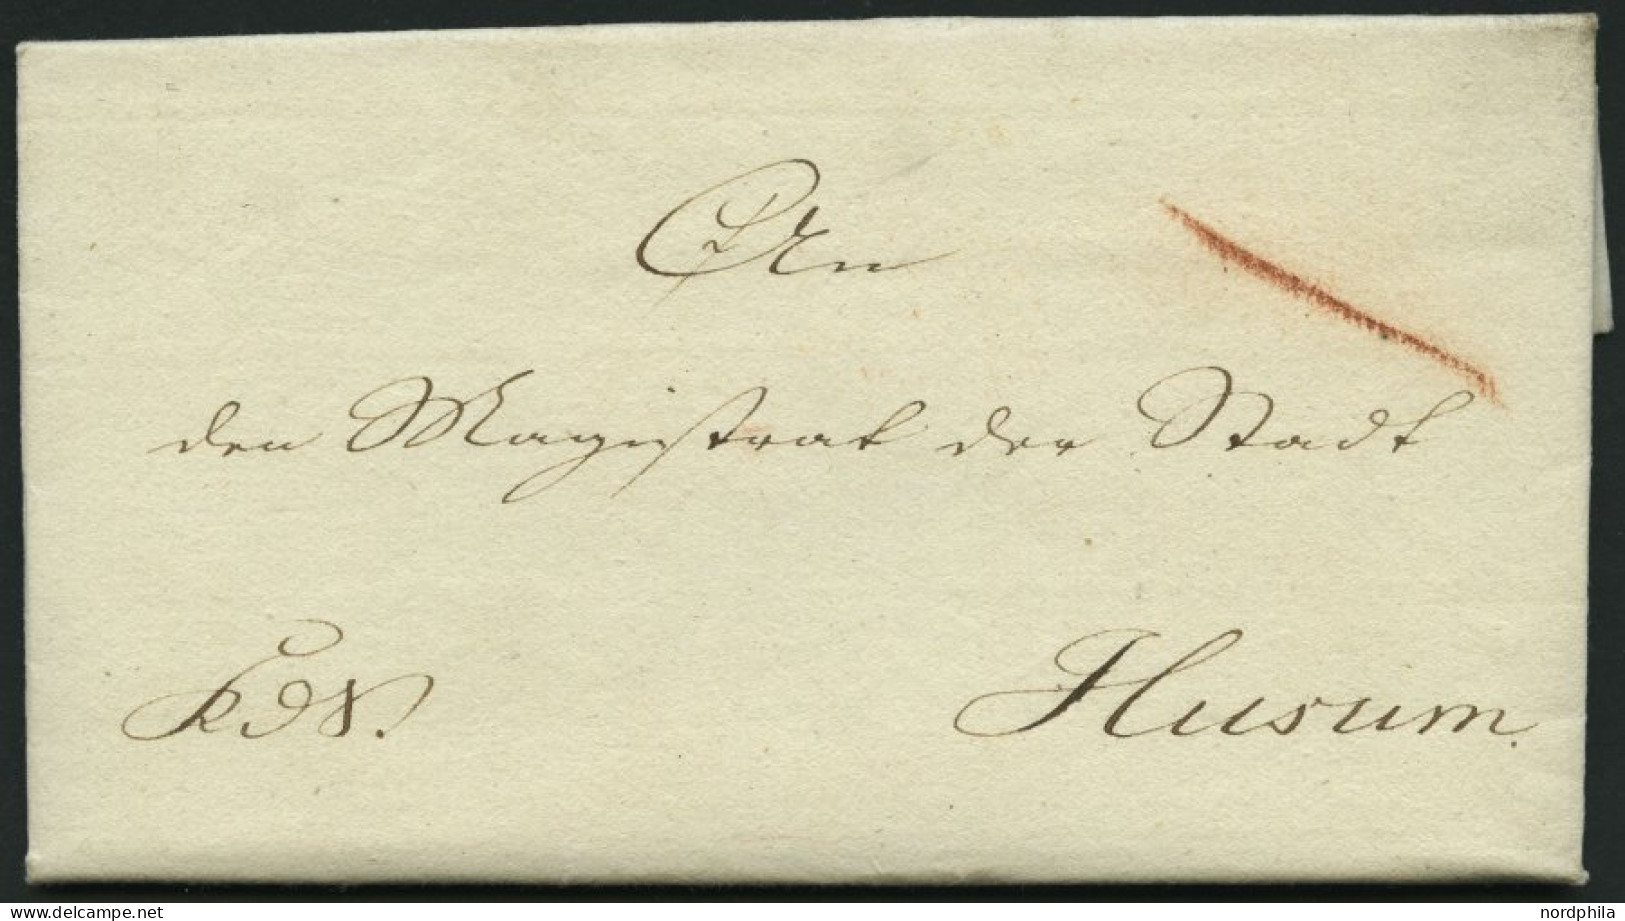 An
den Magistrat der Stadt
Husum.
www.delcampe.net
nordphila